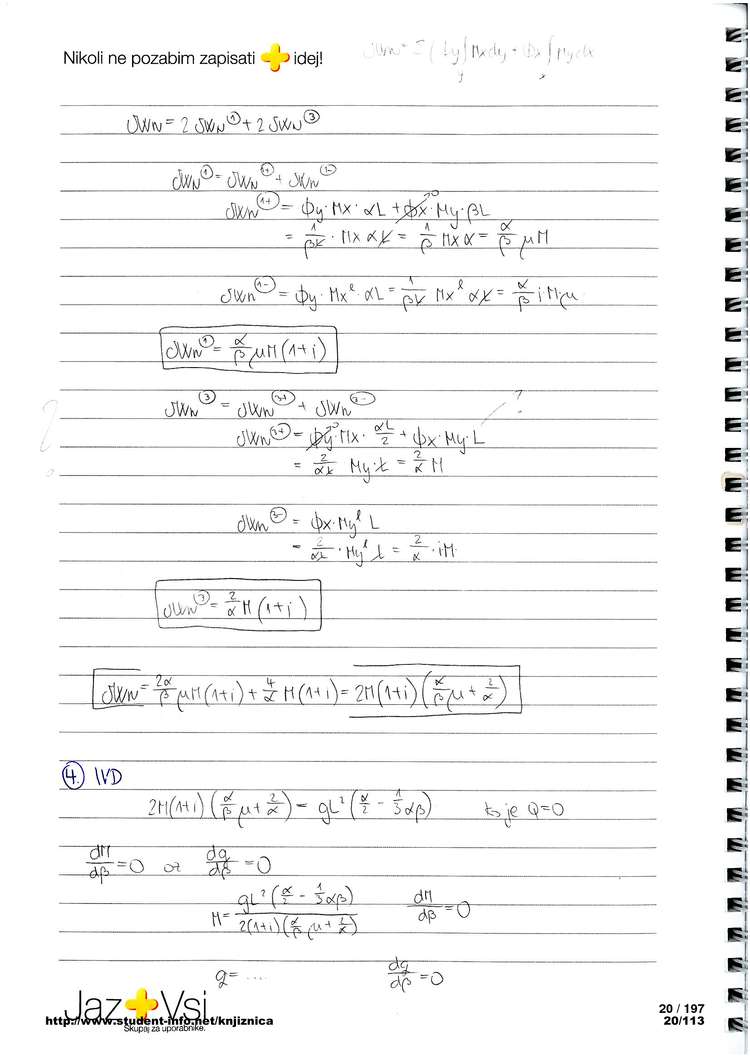 Nikoli ne pozabim zapisati + idej!
δWn = 2 δWn^① + 2 δWn^③
δWn^① = δWn^(1+) + δWn^(1-)
δWn^(1+) = ϕy · Mx · αL + ϕx · My · βL
= 1/βL · Mx αL = 1/β Mx α = α/β μM
δWn^(1-) = ϕy · Mx^l · αL = 1/βL Mx^l αL = α/β i M μ
δWn^① = α/β μM (1+i)
δWn^③ = δWn^(3+) + δWn^(3-)
δWn^(3+) = ϕy · Mx · αL/2 + ϕx · My · L
?
= 2/αL My · L = 2/α M
?
δWn^(3-) = ϕx · My^l L
= 2/αL · My^l L = 2/α · iM
δWn^③ = 2/α M (1+i)
δWn = 2α/β μM (1+i) + 4/α M (1+i) = 2M (1+i) (α/β μ + 2/α)
④. IVD
2M(1+i) (α/β μ + 2/α) = gL² (α/2 - 1/3 αβ) to je Q=0
dM/dβ = 0 or dg/dβ = 0
M = gL² (α/2 - 1/3 αβ) / 2(1+i) (α/β μ + 2/α) dM/dβ = 0
g = .... dg/dβ = 0
Jaz + Vsi
Skupaj za uporabnike.
http://www.student-info.net/knjiznica
20 / 197
20/113